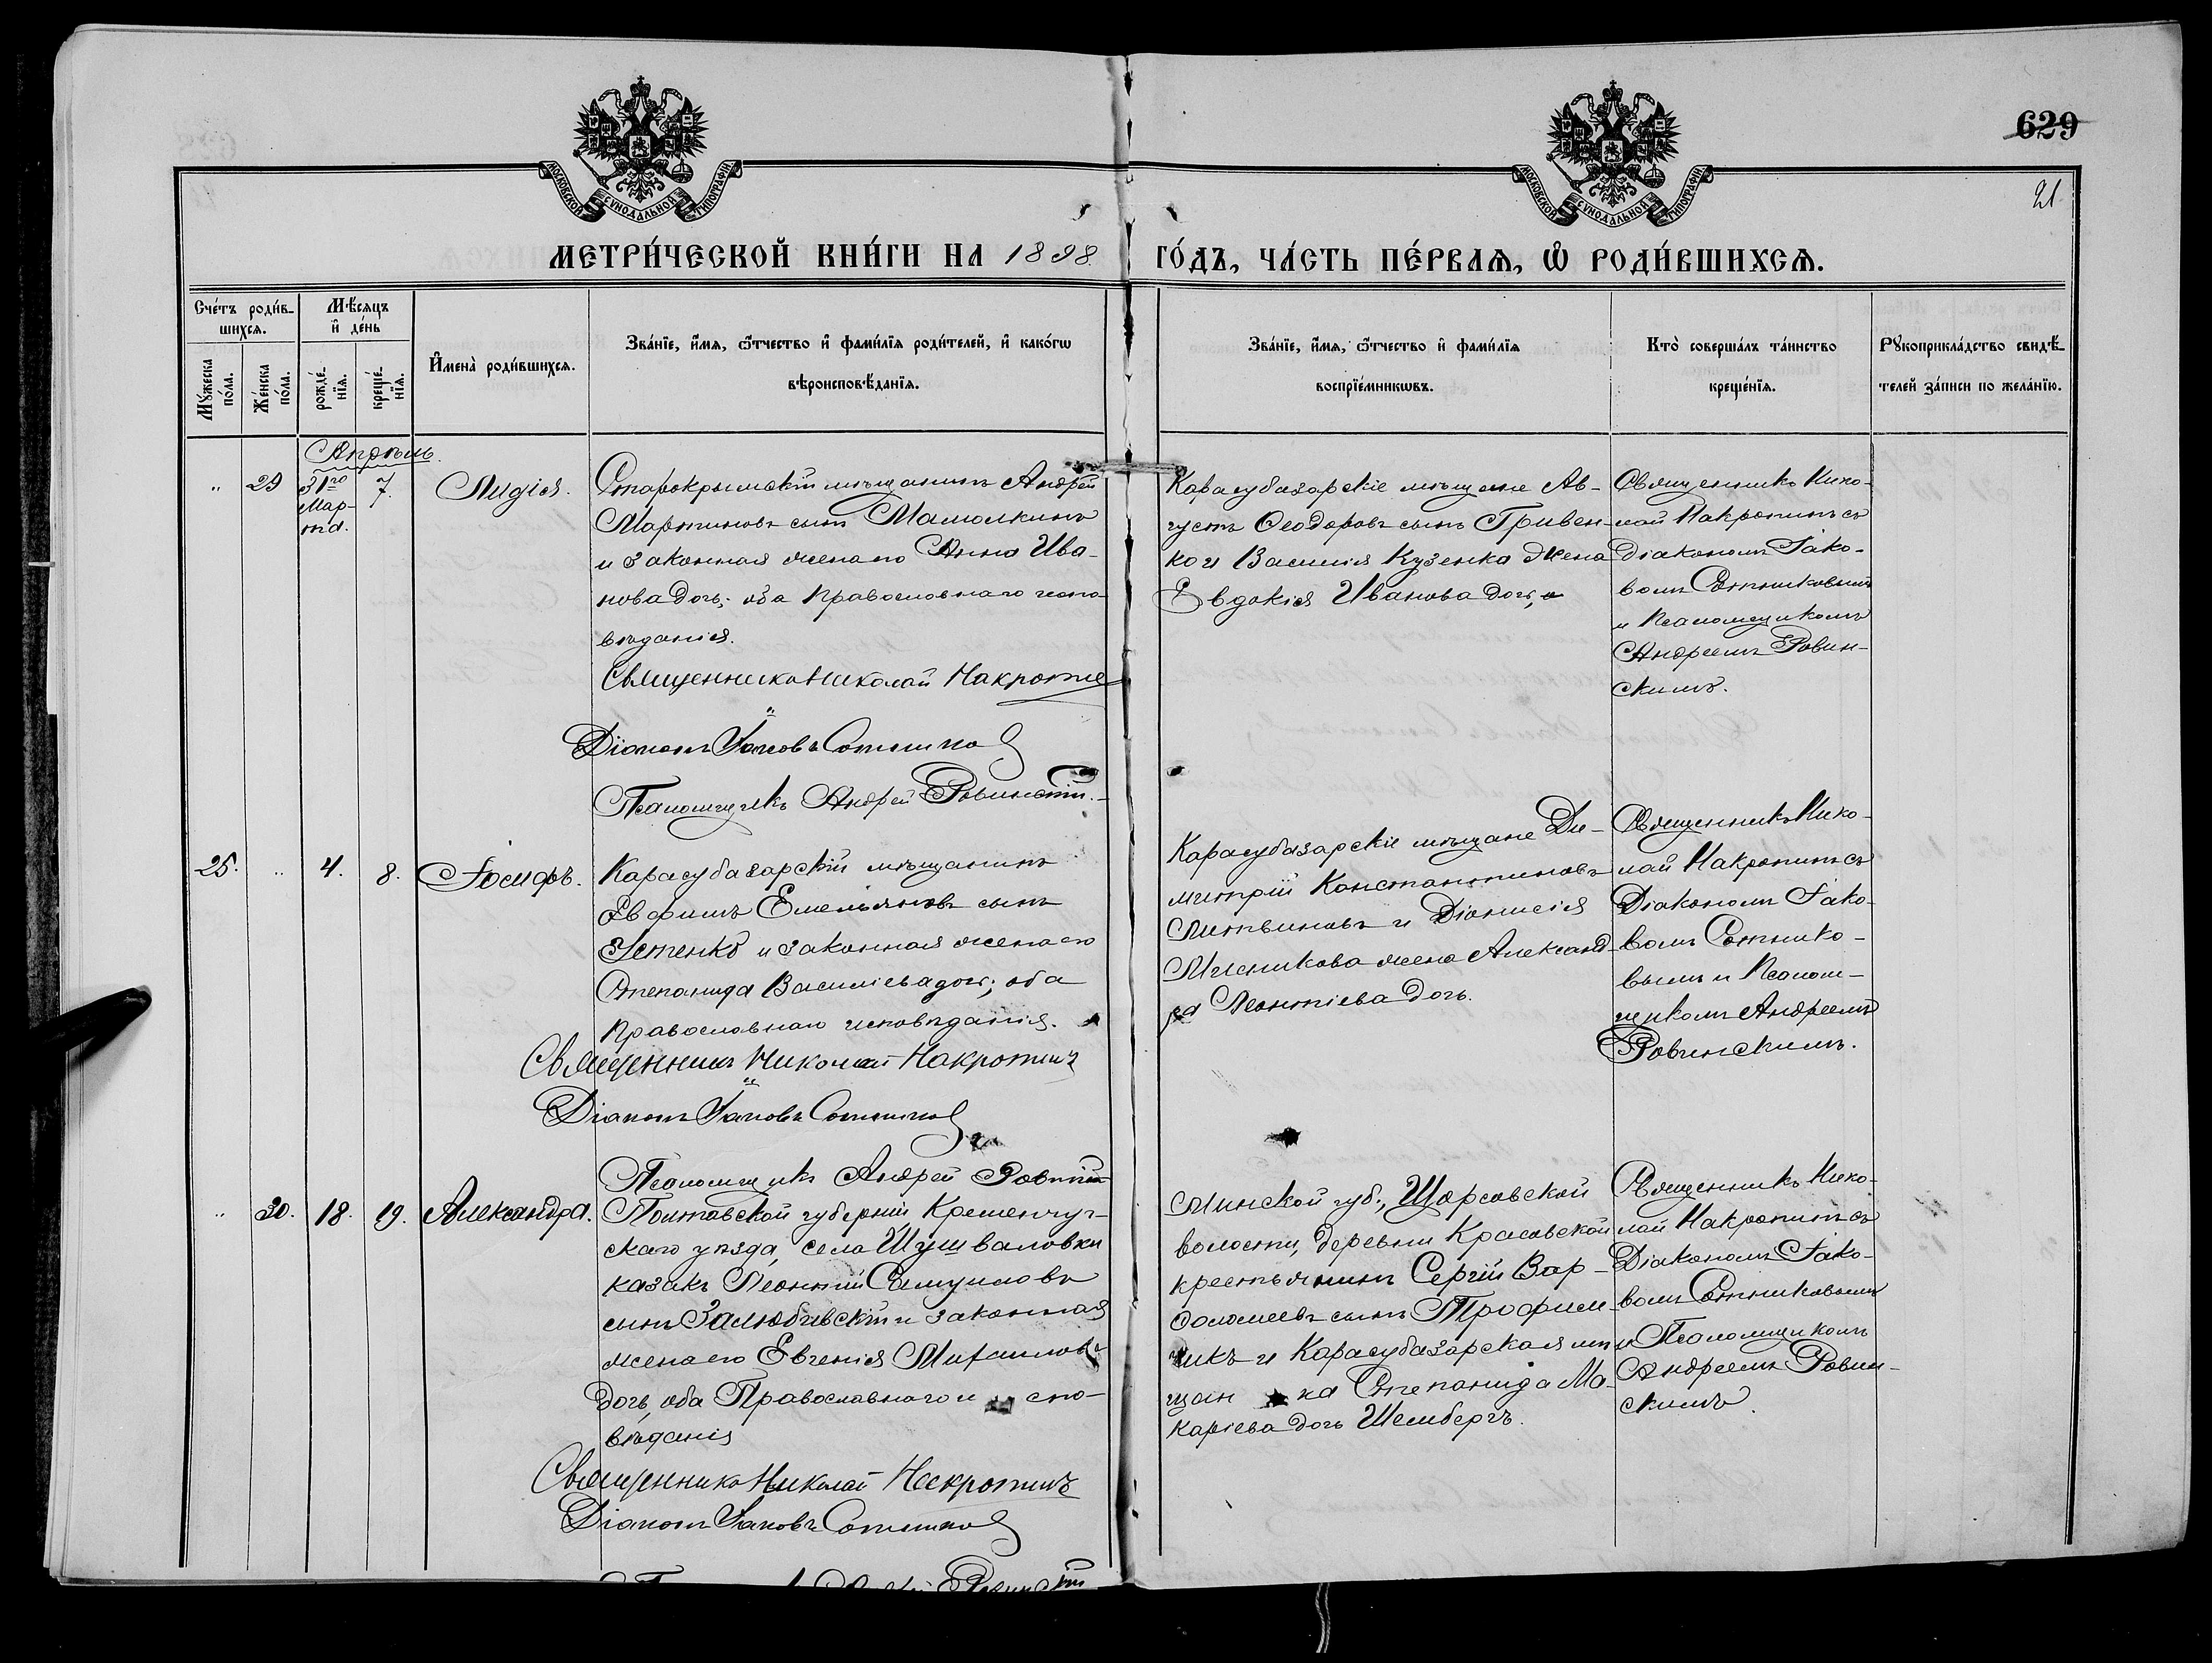 629
21
МОСКОВСКОЙ СѴНОДАЛЬНОЙ ТИПОГРАФІИ
МОСКОВСКОЙ СѴНОДАЛЬНОЙ ТИПОГРАФІИ
МЕТРИ́ЧЕСКОЙ КНИ́ГИ НА 1898 ГО́ДЪ, ЧА́СТЬ ПЕ́РВАѦ, Ѡ РОДИ́ВШИХСѦ.
Сче́тъ роди́в-
шихся.
Мѣ́сяцъ
и де́нь
Мꙋ́жеска по́ла.
Же́нска по́ла.
рожде́-нїя.
креще́-нїя.
И҆мена̀ роди́вшихся.
Зва́нїе, и҆́мя, ѻ҆́тчество и҆ фами́лїя роди́телей, и҆ како́гѡ
вѣроисповѣ́данїя.
Зва́нїе, и҆́мя, ѻ҆́тчество и҆ фами́лїя
воспрїе́мникѡвъ.
Кто̀ соверша́лъ та́инство
креще́нїя.
Рꙋкоприкла́дство свидѣ́-
телей за́писи по жела́нїю.
Апрѣль.
" 29 31го Мар-та. 7. Лидія.
Старокрымскій мѣщанинъ Андрей
Мартиновъ сынъ Мамолкинъ
и законная жена его Анна Ива-
нова дочь; оба Православнаго испо-
вѣданія.
Священникъ Николай Накропинъ
Діаконъ Іаковъ Сотников
Псаломщикъ Андрей Ровинскій.
Карасубазарскіе мѣщане Ав-
густъ Ѳеодоровъ сынъ Гривен-
ко и Василія Кузенка жена
Евдокія Иванова дочь,
Священникъ Нико-
лай Накропинъ съ
Діакономъ Іако-
вомъ Сотниковымъ
и Псаломщикомъ
Андреемъ Ровин-
скимъ.
25. " 4. 8. Іосифъ.
Карасубазарскій мѣщанинъ
Евфимъ Емельяновъ сынъ
Устенко и законная жена его
Степанида Василіева дочь; оба
Православнаго исповѣданія.
Священникъ Николай Накропинъ
Діаконъ Іаковъ Сотников
Псаломщикъ Андрей Ровинскій
Карасубазарскіе мѣщане Ди-
митрій Константиновъ
Литвиновъ и Діонисія
жена Александ-
ра Леонтіева дочь.
Священникъ Нико-
лай Накропинъ съ
Діакономъ Іако-
вомъ Сотнико-
вымъ и Псалом-
щикомъ Андреемъ
Ровинскимъ.
" 30. 18. 19. Александра.
Полтавской губерніи Кременчуг-
скаго уѣзда, села Шушваловки
казакъ Леонтій Самуиловъ
сынъ Залюбивскій и законная
жена его Евгенія Михаилова
дочь, оба Православнаго испо-
вѣданія
Священникъ Николай Накропинъ
Діаконъ Іаковъ Сотников
Минской губ., Щорсовской
волости, деревни Красовской
крестьянинъ Сергій Вар-
ѳоломеевъ сынъ Трофим-
чикъ и Карасубазарская мѣ-
щан ка Степанида Ма-
каріева дочь Шембергъ.
Священникъ Нико-
лай Накропинъ съ
Діакономъ Іако-
вомъ Сотниковымъ
и Псаломщикомъ
Андреемъ Ровин-
скимъ.